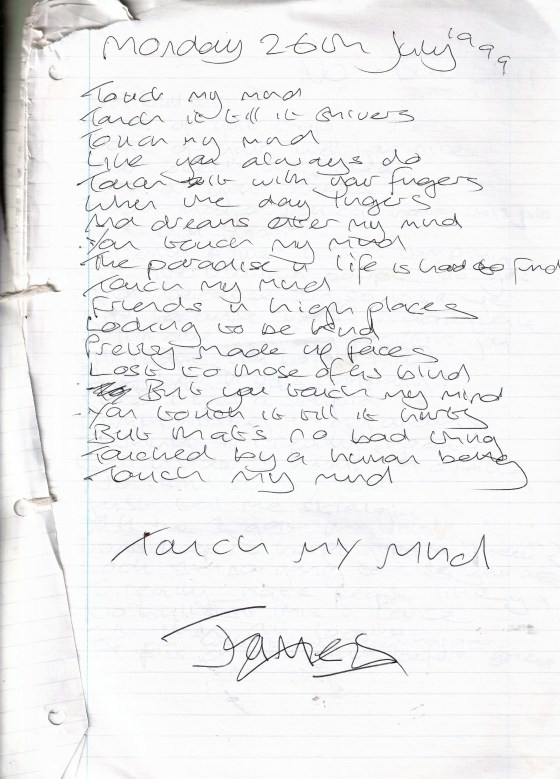 Monday 26th July 1999
Touch my mind
Touch it till it shivers
Touch my mind
Like you always do
Touch it with your fingers
When the day lingers
And dreams enter my mind
You touch my mind
The paradise in life is hard to find
Touch my mind
Friends in high places
Looking to be kind
Pretty made up faces
Lost to those of us blind
But you touch my mind
You touch it till it hurts
But that's no bad thing
Touched by a human being
Touch my mind
Touch my mind
James